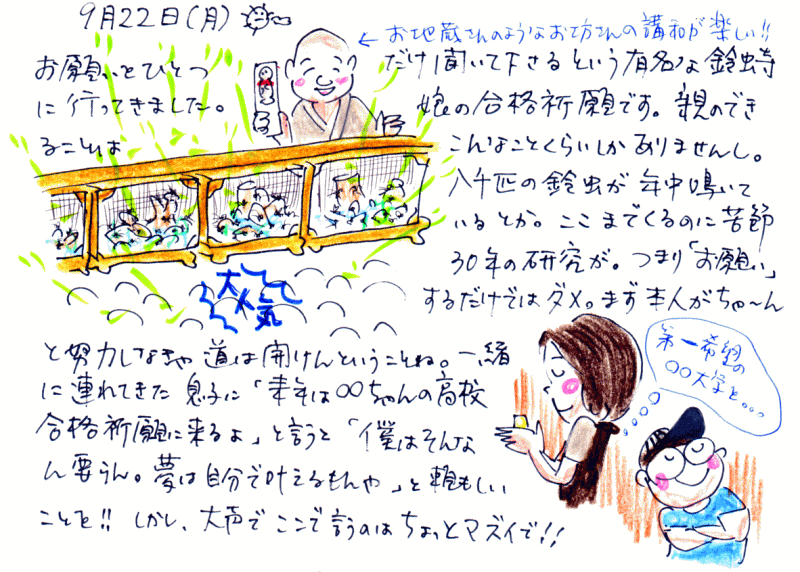 9月22日(月)
←お地蔵さんのようなお坊さんの講和が楽しい!!
お願いをひとつ
だけ聞いて下さるという有名な鈴虫寺
に行ってきました。
娘の合格祈願です。親のでき
ることは
こんなことくらいしかありませんし。
八千匹の鈴虫が年中鳴いて
いるとか。ここまでくるのに苦節
30年の研究が。つまり「お願い」
するだけではダメ。まず本人がちゃ〜ん
大人気
と努力しなきゃ道は開けんということね。一緒
に連れてきた息子に「来年は○○ちゃんの高校
合格祈願に来るよ」と言うと「僕はそんな
ん要らん。夢は自分で叶えるもんや」と頼もしい
ことを!!しかし、大声でここで言うのはちょっとマズイで!!
第一希望の
○○大学を...